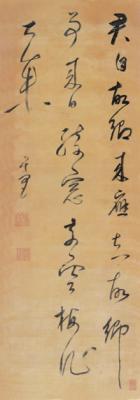 君自故鄉來應知故鄉
事來日綺窓前寒梅著
花未